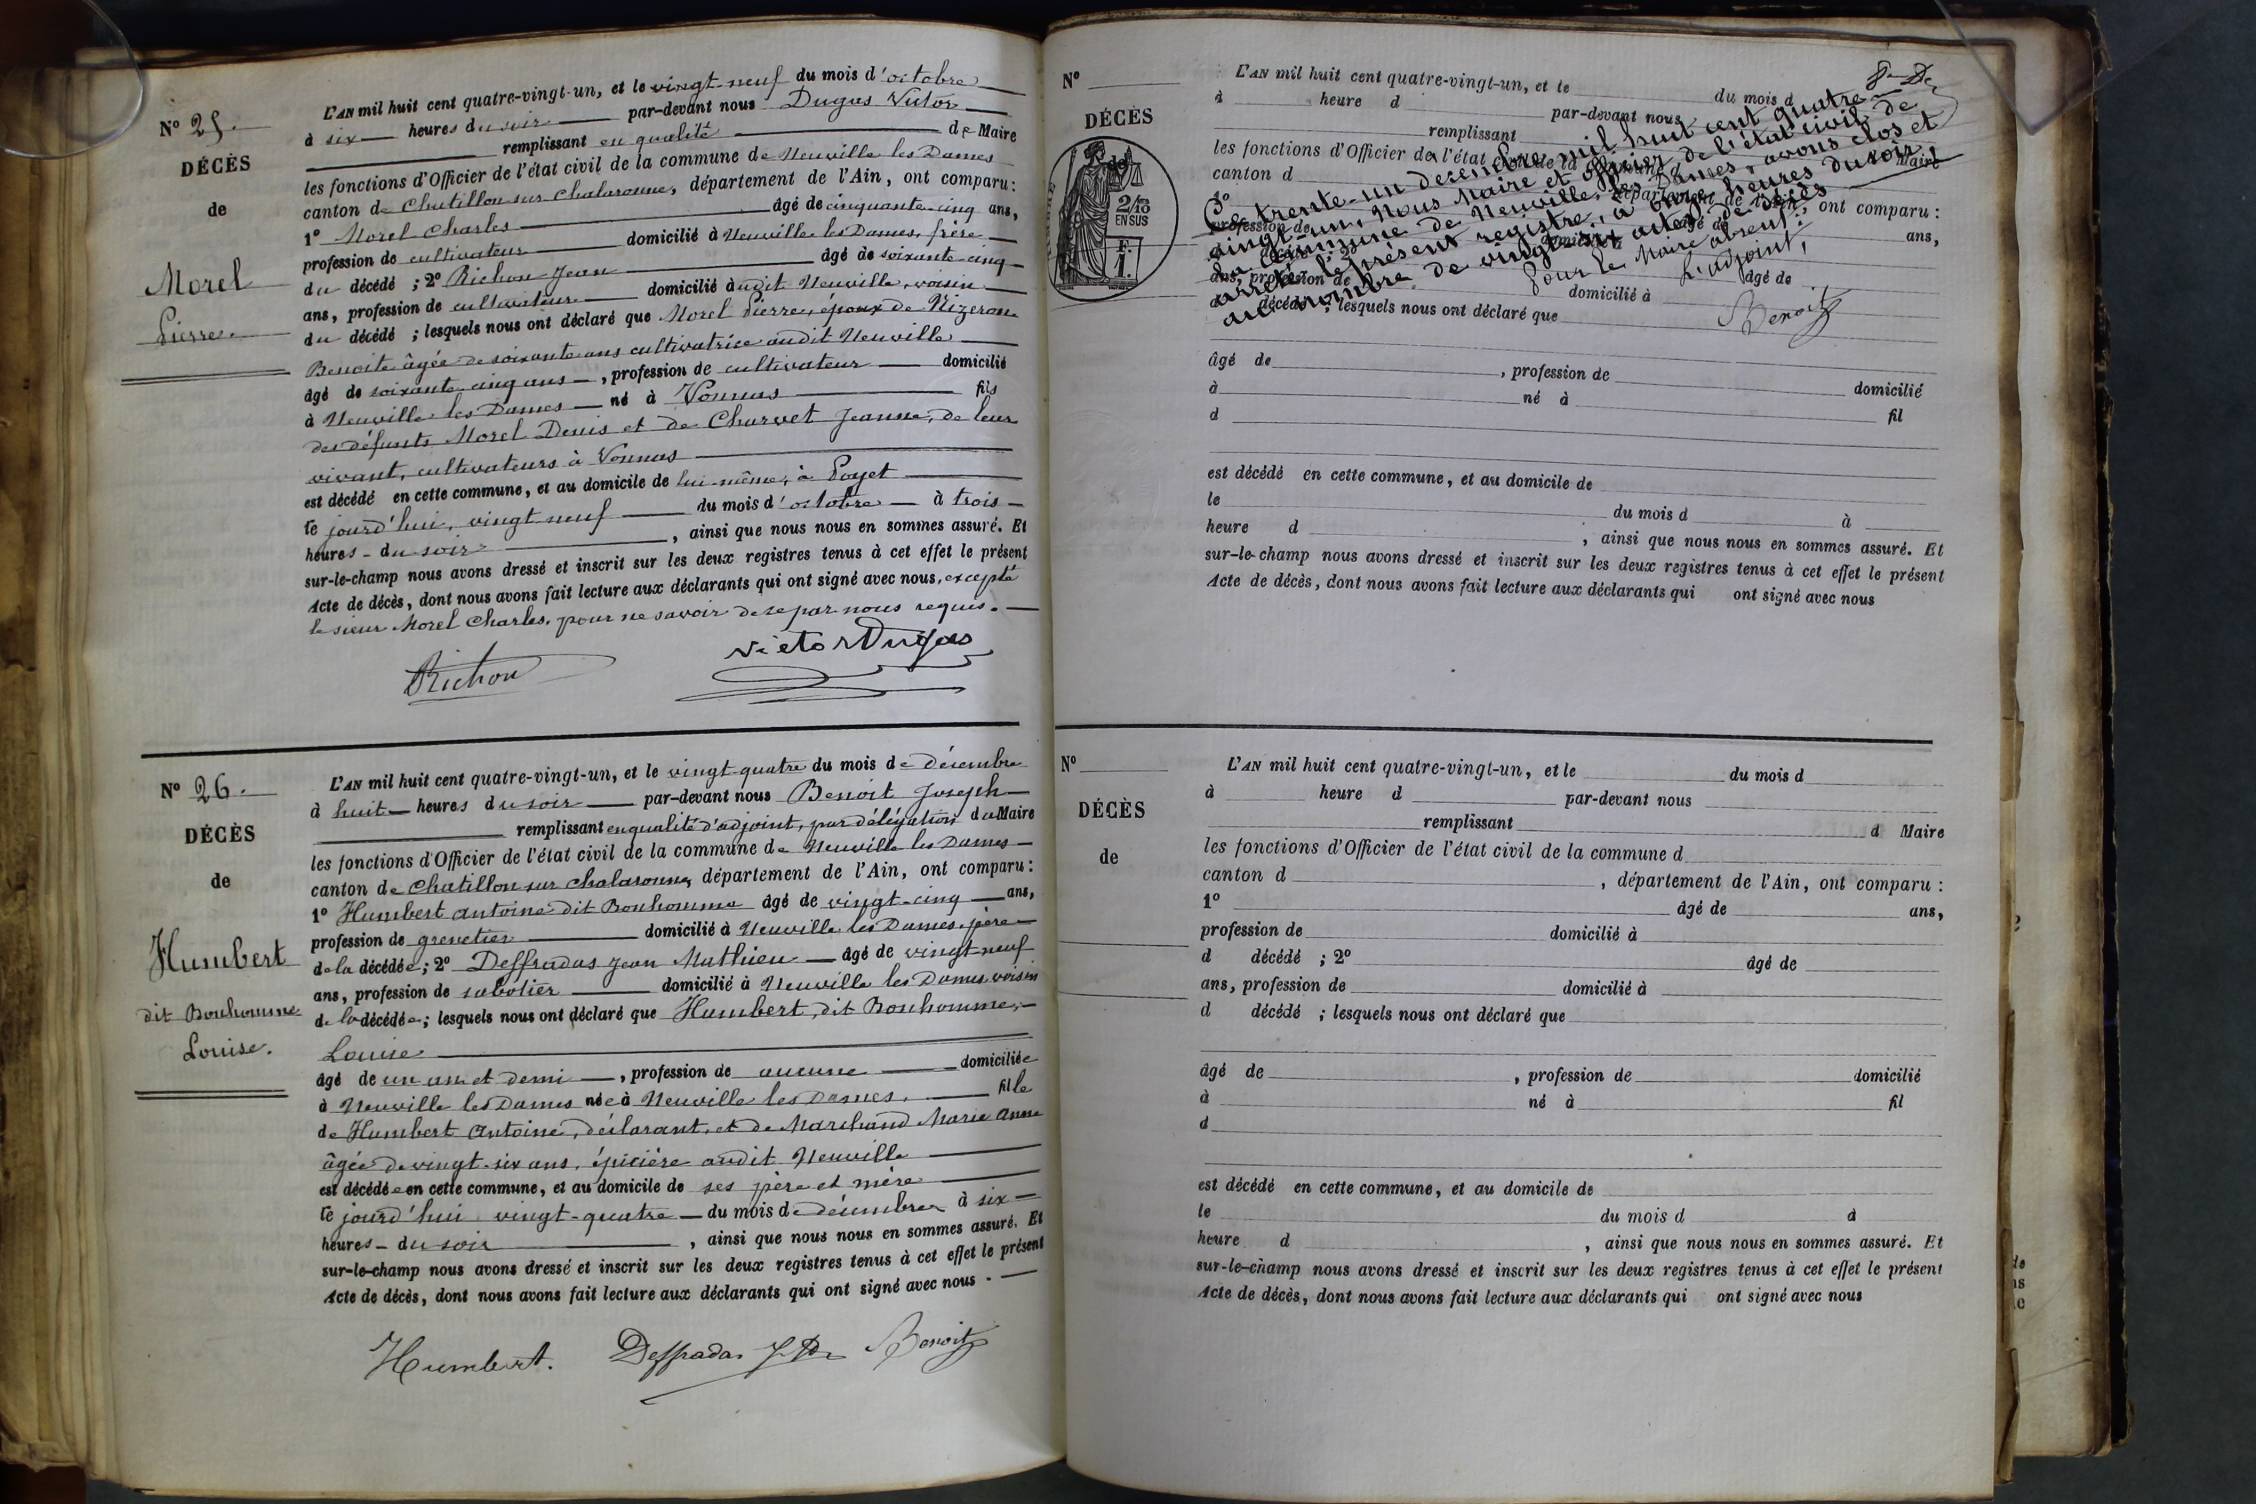 N° 25.
DÉCÈS
de
Morel
Pierre.
L'AN mil huit cent quatre-vingt-un, et le vingt-neuf du mois d'octobre
à six heures du soir par-devant nous Dugas Victor
remplissant en qualité de Maire
les fonctions d'Officier de l'état civil de la commune de Neuville les Dames
canton de Chatillon sur Chalaronne, département de l'Ain, ont comparu :
1° Morel Charles âgé de cinquante-cinq ans,
profession de cultivateur domicilié à Neuville les Dames, frère
du décédé ; 2° Richon Jean âgé de soixante-cinq
ans, profession de cultivateur domicilié audit Neuville, voisin
du décédé ; lesquels nous ont déclaré que Morel Pierre, époux de Nizeron
Benoite âgée de soixante ans cultivatrice audit Neuville
âgé de soixante cinq ans, profession de cultivateur domicilié
à Neuville les Dames né à Vonnas fils
des défunts Morel Denis et de Charvet Jeanne, de leur
vivant, cultivateurs à Vonnas
est décédé en cette commune, et au domicile de lui-même, à Poyet
ce jourd'hui, vingt-neuf du mois d'octobre à trois
heures du soir, ainsi que nous nous en sommes assuré. Et
sur-le-champ nous avons dressé et inscrit sur les deux registres tenus à cet effet le présent
Acte de décès, dont nous avons fait lecture aux déclarants qui ont signé avec nous, excepté
le sieur Morel Charles, pour ne savoir de ce par nous requis.
Richon
Victor Dugas
N° 26.
DÉCÈS
de
Humbert
dit Bonhomme
Louise.
L'AN mil huit cent quatre-vingt-un, et le vingt-quatre du mois de décembre
à huit heures du soir par-devant nous Benoit Joseph
remplissant en qualité d'adjoint, par délégation du Maire
les fonctions d'Officier de l'état civil de la commune de Neuville les Dames
canton de Chatillon sur Chalaronne, département de l'Ain, ont comparu :
1° Humbert Antoine dit Bonhomme âgé de vingt-cinq ans,
profession de grenetier domicilié à Neuville les Dames, père
de la décédée ; 2° Deffradas Jean Mathieu âgé de vingt-neuf
ans, profession de sabotier domicilié à Neuville les Dames, voisin
de la décédée ; lesquels nous ont déclaré que Humbert, dit Bonhomme,
Louise
âgé de un an et demi, profession de aucune domiciliée
à Neuville les Dames née à Neuville les Dames, fille
de Humbert Antoine, déclarant, et de Marchand Marie Anne
âgée de vingt-six ans, épicière audit Neuville
est décédée en cette commune, et au domicile de ses père et mère
ce jourd'hui vingt-quatre du mois de décembre à six
heures du soir, ainsi que nous nous en sommes assuré. Et
sur-le-champ nous avons dressé et inscrit sur les deux registres tenus à cet effet le présent
Acte de décès, dont nous avons fait lecture aux déclarants qui ont signé avec nous.
Humbert. Deffradas J. Benoit
N°
DÉCÈS
de
2/10
EN SUS
F.
1.
L'AN mil huit cent quatre-vingt-un, et le du mois d
à heure d par-devant nous
remplissant Maire
les fonctions d'Officier de l'état civil de la commune
canton d département de l'Ain, ont comparu :
1° âgé de ans,
profession de domicilié
décédé ; 2° âgé de
ans, profession de domicilié à
d décédé ; lesquels nous ont déclaré que
Ce trente-un decembre mil huit cent quatre
vingt-un, Nous Maire et officier de l'état civil de
la commune de Neuville les Dames, avons clos et
arrêté le présent registre, à onze heures du soir,
au nombre de vingt-six actes de décès
Pour le Maire absent :
L'adjoint,
Benoit
âgé de , profession de domicilié
à né à fil
d
est décédé en cette commune, et au domicile de
le du mois d à
heure d , ainsi que nous nous en sommes assuré. Et
sur-le-champ nous avons dressé et inscrit sur les deux registres tenus à cet effet le présent
Acte de décès, dont nous avons fait lecture aux déclarants qui ont signé avec nous
N°
DÉCÈS
de
L'AN mil huit cent quatre-vingt-un, et le du mois d
à heure d par-devant nous
remplissant d Maire
les fonctions d'Officier de l'état civil de la commune d
canton d , département de l'Ain, ont comparu :
1° âgé de ans,
profession de domicilié à
d décédé ; 2° âgé de
ans, profession de domicilié à
d décédé ; lesquels nous ont déclaré que
âgé de , profession de domicilié
à né à fil
d
est décédé en cette commune, et au domicile de
le du mois d à
heure d , ainsi que nous nous en sommes assuré. Et
sur-le-champ nous avons dressé et inscrit sur les deux registres tenus à cet effet le présent
Acte de décès, dont nous avons fait lecture aux déclarants qui ont signé avec nous